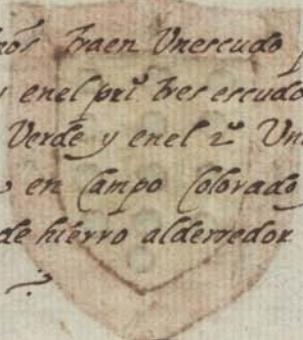 traen Vnescudo
y enel pri.º tres escudo
Verde y enel 2.º Vn
en Campo Colorado
de hierro alderredor